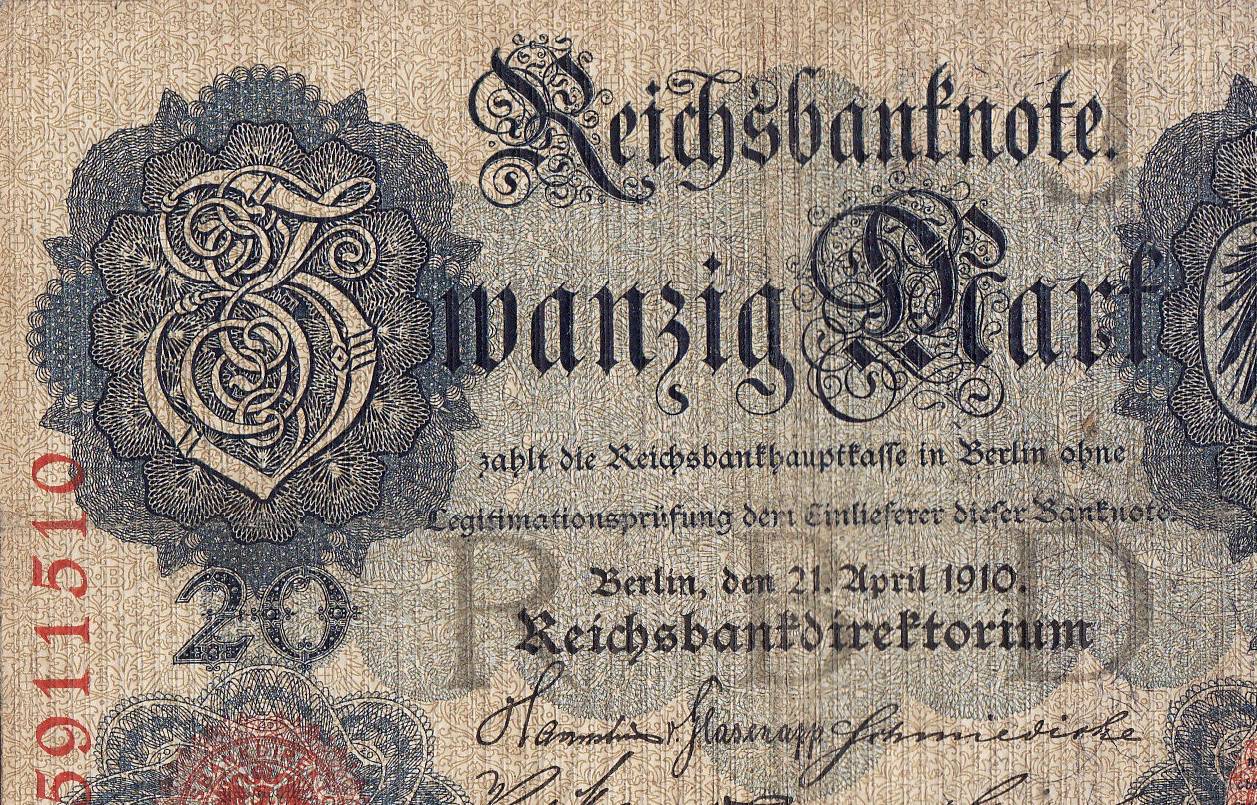 Reichsbanknote.
Zwanzig Mark
zahlt die Reichsbankhauptkasse in Berlin ohne
Legitimationsprüfung dem Einlieferer dieser Banknote.
Berlin, den 21. April 1910.
Reichsbankdirektorium
v. Glasenapp Schmiedicke
20
5911510
R B D